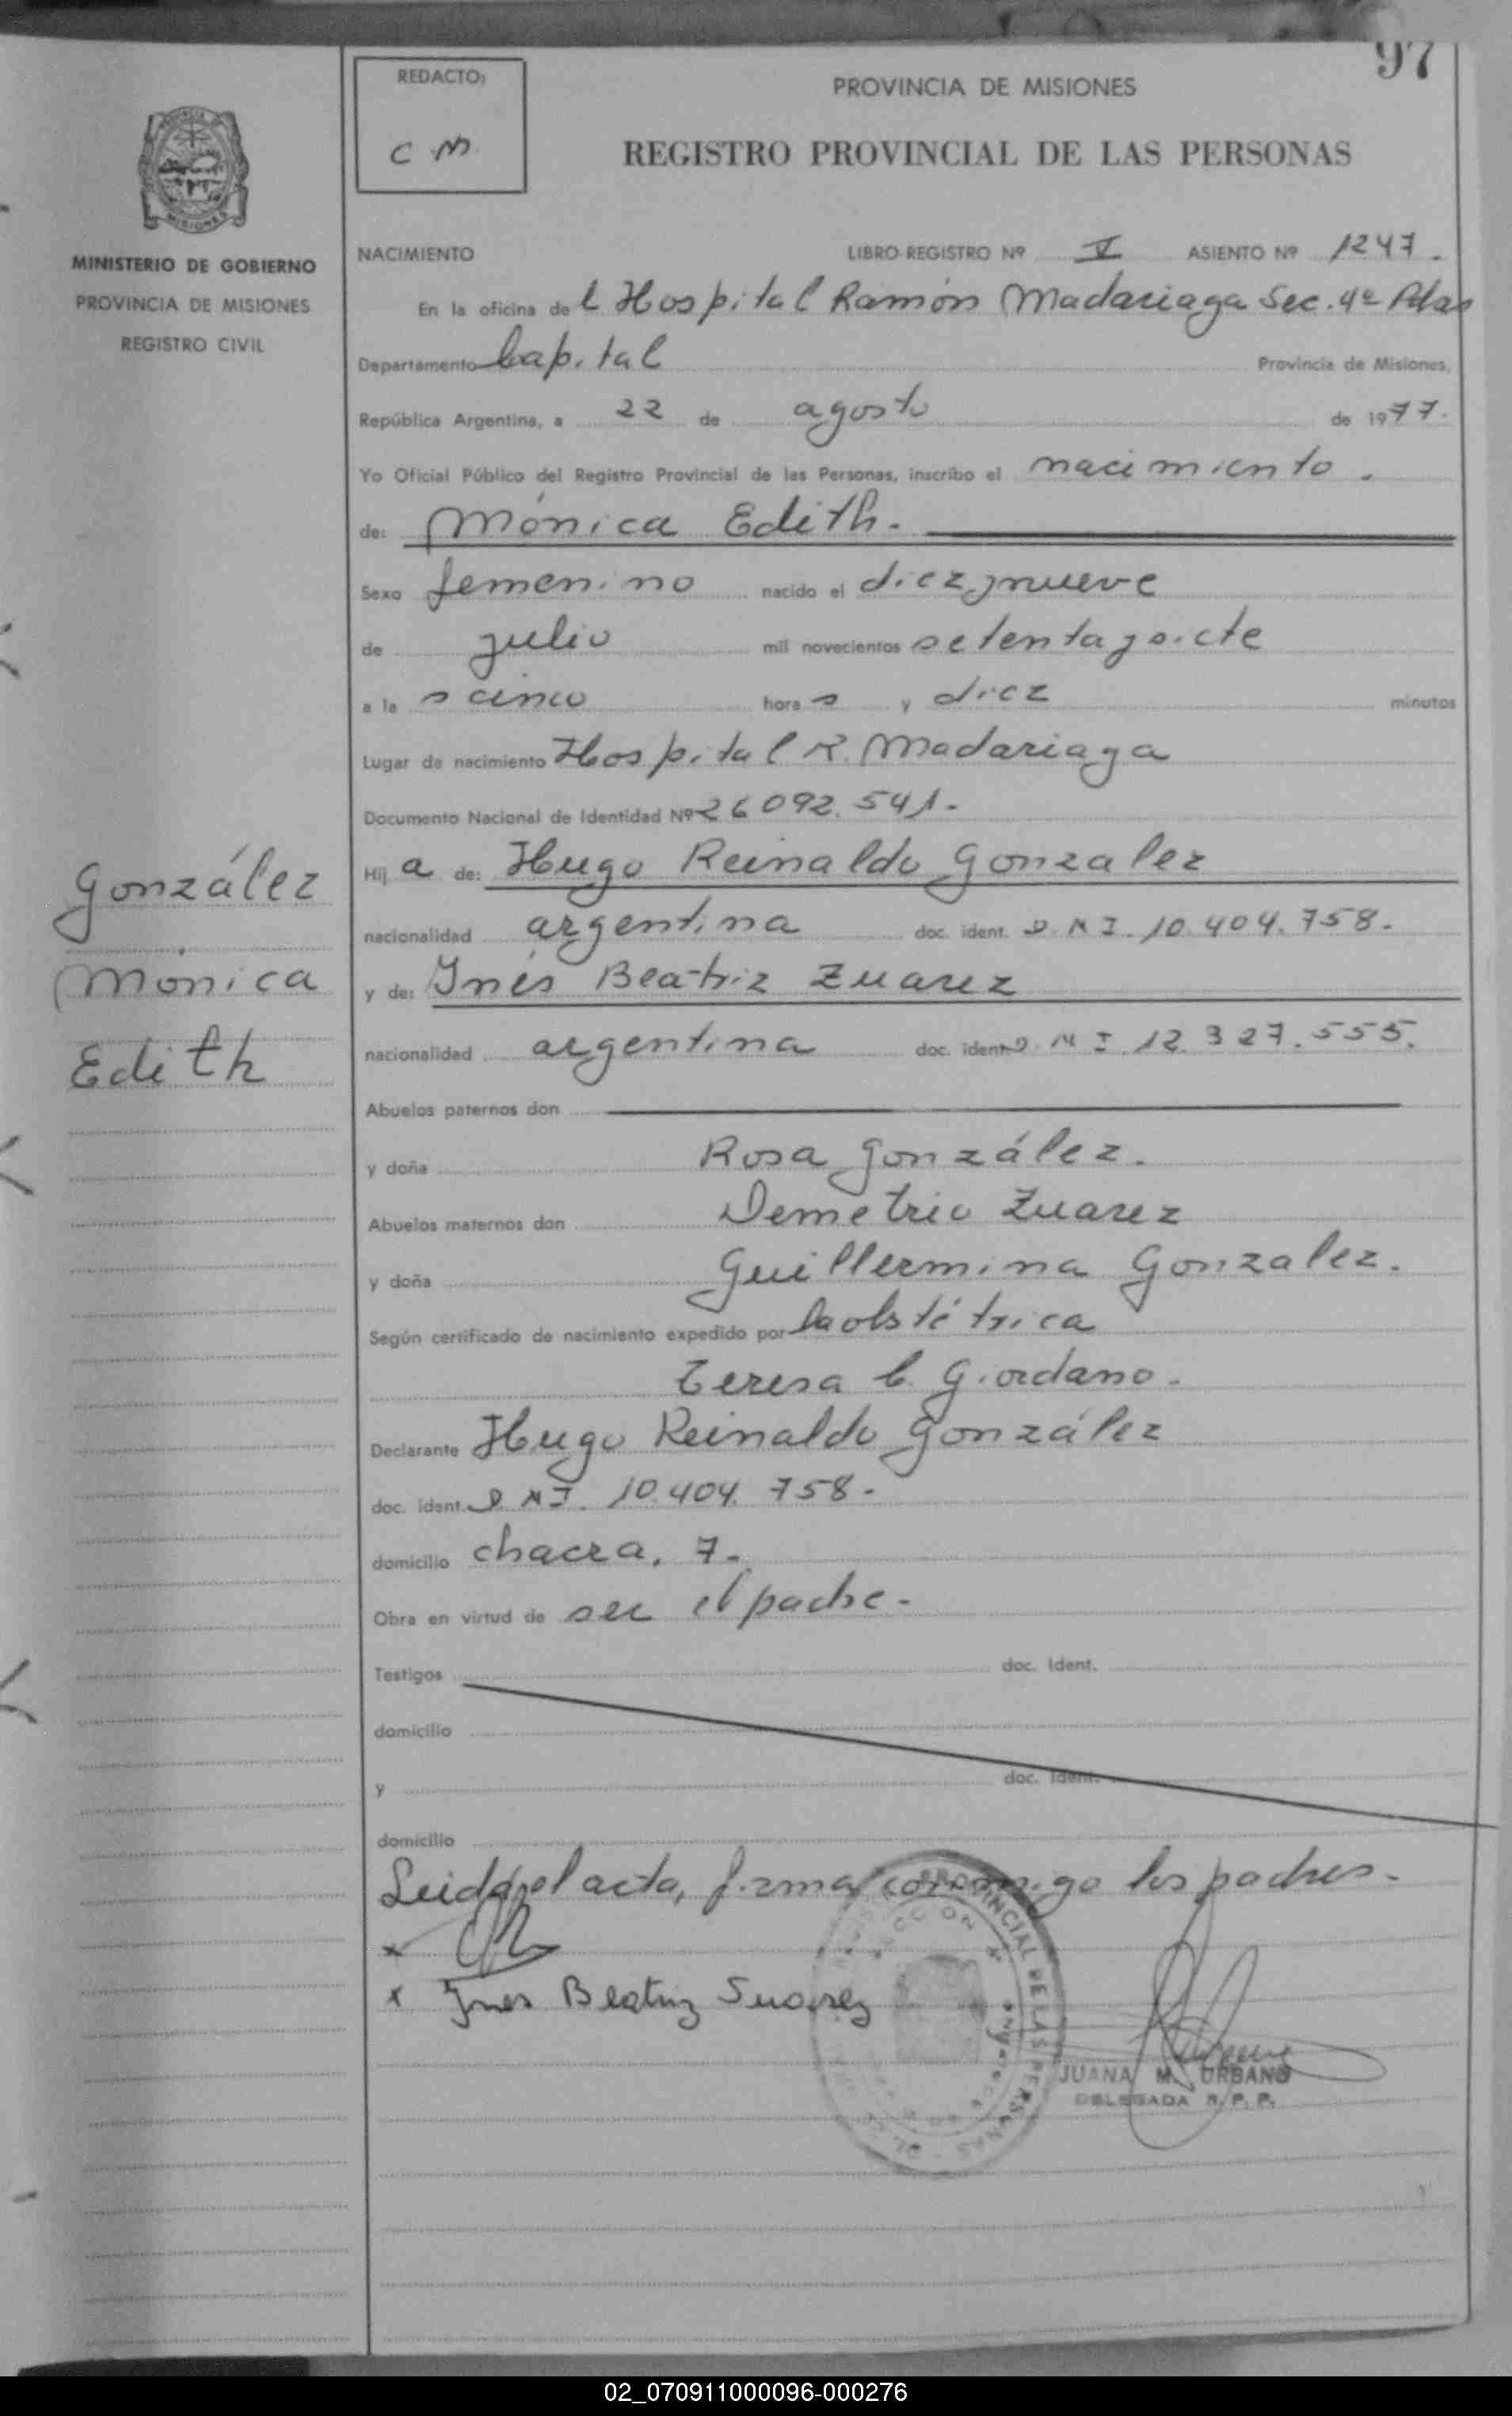 97
REDACTO:
C M
PROVINCIA DE MISIONES
REGISTRO PROVINCIAL DE LAS PERSONAS
MISIONES
MINISTERIO DE GOBIERNO
PROVINCIA DE MISIONES
REGISTRO CIVIL
NACIMIENTO LIBRO REGISTRO Nº V ASIENTO Nº 1247.
En la oficina del Hospital Ramón Madariaga Sec. 4ª Pdas
Departamento Capital Provincia de Misiones,
República Argentina, a 22 de agosto de 1977.
Yo Oficial Público del Registro Provincial de las Personas, inscribo el nacimiento.
de: Mónica Edith.
Sexo femenino nacido el diez y nueve
de julio mil novecientos setenta y siete
a las cinco horas y diez minutos
Lugar de nacimiento Hospital R. Madariaga
Documento Nacional de Identidad Nº 26092.541.
González
Mónica
Edith
Hija de: Hugo Reinaldo Gonzalez
nacionalidad argentina doc. ident. D.N.I. 10.404.758.
y de: Inés Beatriz Zuarez
nacionalidad argentina doc. ident D.N I 12.327.555.
Abuelos paternos don
y doña Rosa González.
Abuelos maternos don Demetrio Zuarez
y doña Guillermina Gonzalez.
Según certificado de nacimiento expedido por la obstétrica
Teresa C. Giordano.
Declarante Hugo Reinaldo González
doc. ident. D.N.I. 10.404.758.
domicilio chacra. 7.
Obra en virtud de ser el padre.
Testigos doc. Ident.
domicilio
y doc. Ident.
domicilio
Leida el acta, firma conmigo los padres.
x
x Ines Beatriz Suarez
PROVINCIAL DE LAS PERSONAS
JUANA M. URBANO
DELEGADA R. P. P.
02_070911000096-000276